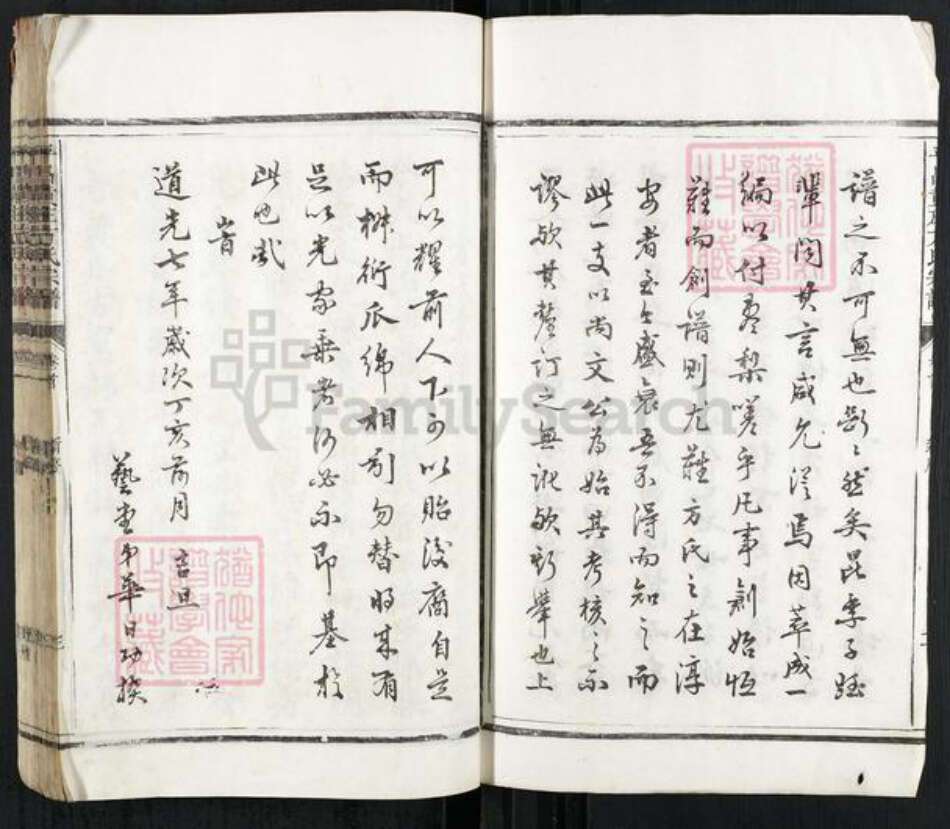 譜之不可無也斷斷然矣昆季子姪
輩聞其言咸允從焉因萃成一
編以付棗梨嗟乎凡事創始恒
難而創譜則尤難方氏之在淳
安者至今盛衰吾不得而知之而
此一支以尚文公為始其考核之不
謬歟其釐訂之無訛歟斯舉也上
可以耀前人下可以貽後裔自是
而椒衍瓜綿相引勿替將來有
足以光家乘者何必不即基於
此也哉
峕
道光七年歲次丁亥 月 吉旦
藝 華日功撰
FamilySearch